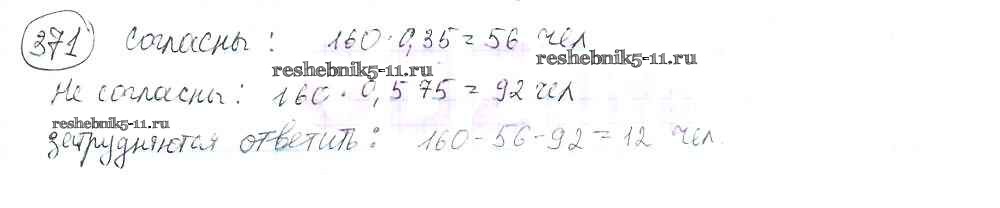 371 Согласны: 160·0,35=56 чел
reshebnik5-11.ru reshebnik5-11.ru
Не согласны: 160·0,575=92 чел
reshebnik5-11.ru
затрудняются ответить: 160-56-92=12 чел.